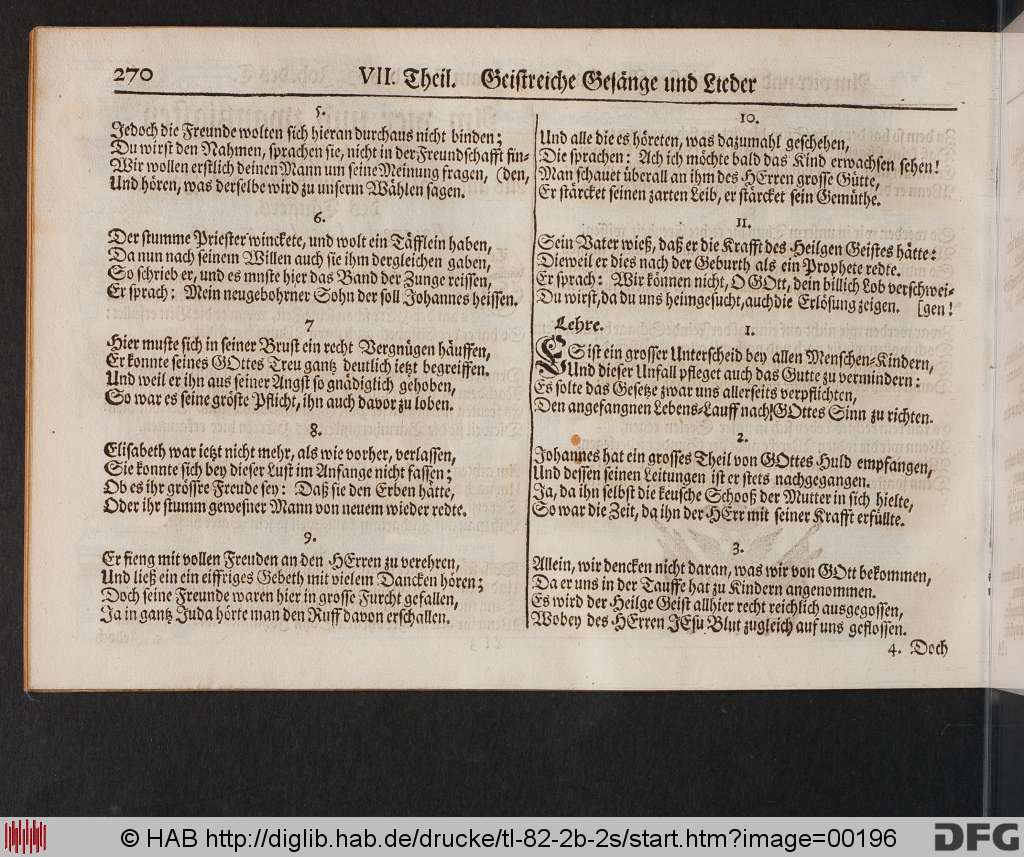 270 VII. Theil. Geistreiche Gesänge und Lieder
5.
Jedoch die Freunde wolten sich hieran durchaus nicht binden;
Du wirst den Nahmen, sprachen sie, nicht in der Freundschafft fin-
Wir wollen erstlich deinen Mann um seine Meinung fragen, (den,
Und hören, was derselbe wird zu unserm Wählen sagen.
6.
Der stumme Priester winckete, und wolt ein Täfflein haben,
Da nun nach seinem Willen auch sie ihm dergleichen gaben,
So schrieb er, und es mnste hier das Band der Zunge reissen,
Er sprach: Mein neugebohrner Sohn der soll Johannes heissen.
7
Hier muste sich in seiner Brust ein recht Vergnügen häuffen,
Er konte seines GOttes Treu gantz deutlich ietzt begreiffen.
Und weil er ihn aus seiner Angst so gnädiglich gehoben,
So war es seine gröste Pflicht, ihn auch davor zu loben.
8.
Elisabeth war ietzt nicht mehr, als wie vorher, verlassen,
Sie konte sich bey dieser Lust im Anfange nicht fassen;
Ob es ihr grössre Freude sey: Daß sie den Erben hätte,
Oder ihr stumm gewesner Mann von neuem wieder redte.
9.
Er fieng mit vollen Freuden an den HErren zu verehren,
Und ließ ein ein eiffriges Gebeth mit vielem Dancken hören;
Doch seine Freunde waren hier in grosse Furcht gefallen,
Ja in gantz Juda hörte man den Ruff davon erschallen.
10.
Und alle die es höreten, was dazumahl geschehen,
Die sprachen: Ach ich möchte bald das Kind erwachsen sehen!
Man schauet überall an ihm des HErren grosse Gütte,
Er stärcket seinen zarten Leib, er stärcket sein Gemüthe.
11.
Sein Vater wieß, daß er die Krafft des Heilgen Geistes hätte:
Dieweil er dies nach der Geburth als ein Prophete redte.
Er sprach: Wir können nicht, O GOtt, dein billich Lob verschwei-
Du wirst, da du uns heimgesucht, auch die Erlösung zeigen. [gen!
Lehre. 1.
ES ist ein grosser Unterscheid bey allen Menschen-Kindern,
Und dieser Unfall pfleget auch das Gutte zu vermindern:
Es solte das Gesetze zwar uns allerseits verpflichten,
Den angefangnen Lebens-Lauff nach GOttes Sinn zu richten.
2.
Johannes hat ein grosses Theil von GOttes Huld empfangen,
Und dessen seinen Leitungen ist er stets nachgegangen.
Ja, da ihn selbst die keusche Schooß der Mutter in sich hielte,
So war die Zeit, da ihn der HErr mit seiner Krafft erfüllte.
3.
Allein, wir dencken nicht daran, was wir von GOtt bekommen,
Da er uns in der Tauffe hat zu Kindern angenommen.
Es wird der Heilge Geist allhier recht reichlich ausgegossen,
Wobey des HErren JEsu Blut zugleich auf uns geflossen.
4. Doch
© HAB http://diglib.hab.de/drucke/tl-82-2b-2s/start.htm?image=00196
DFG